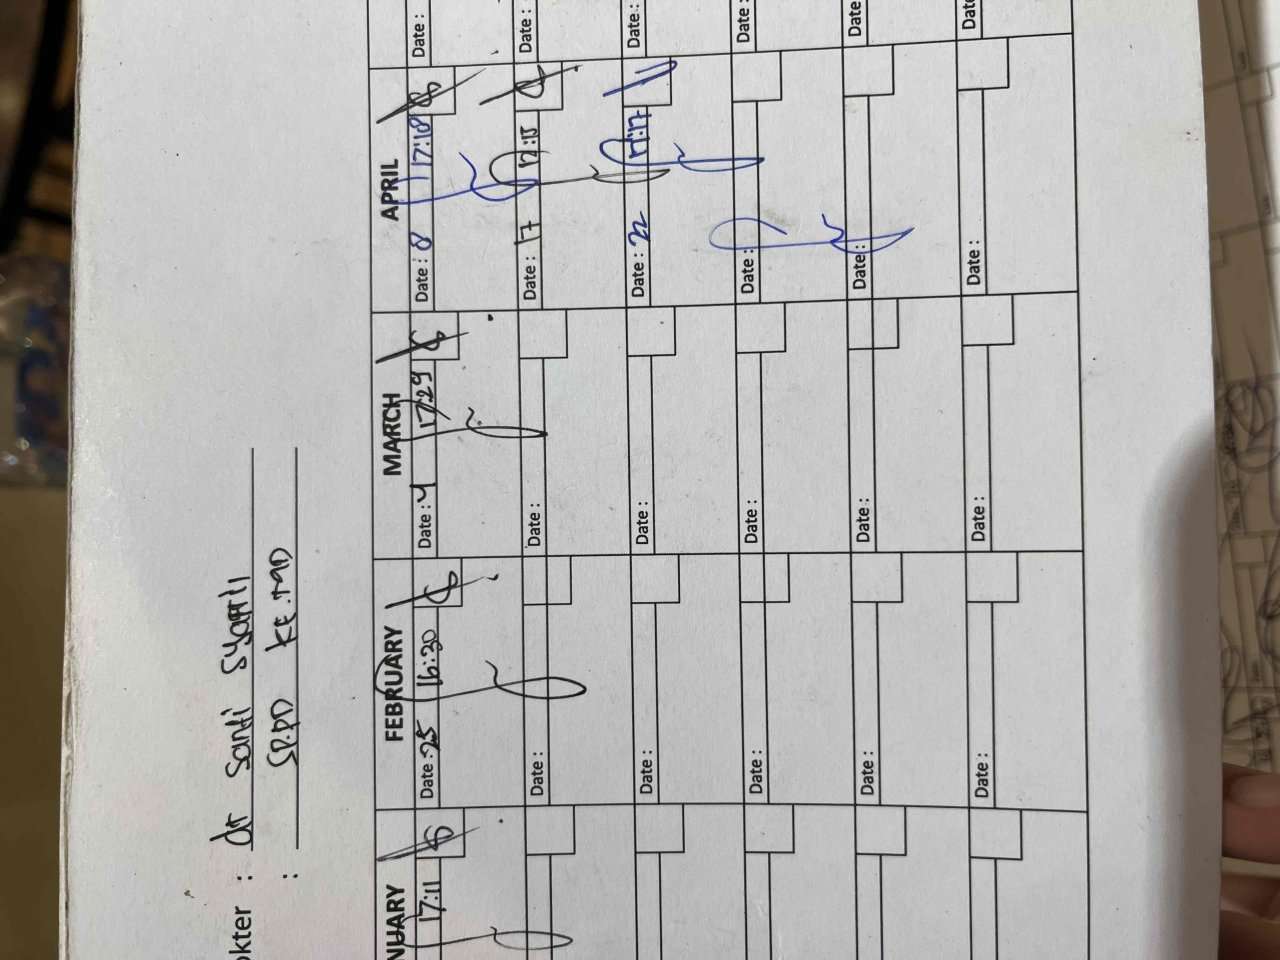 okter : dr Santi Syafril
: SP.PD KE.MD
NUARY FEBRUARY MARCH APRIL
17:11
Date : 25 16:30
Date : 4 17:29
Date : 8 17:18
Date :
Date :
Date :
Date : 17 17:15
Date :
Date :
Date :
Date : 22 17:17
Date :
Date :
Date :
Date :
Date :
Date :
Date :
Date :
Date :
Date :
Date :
Date :
Date :
Date :